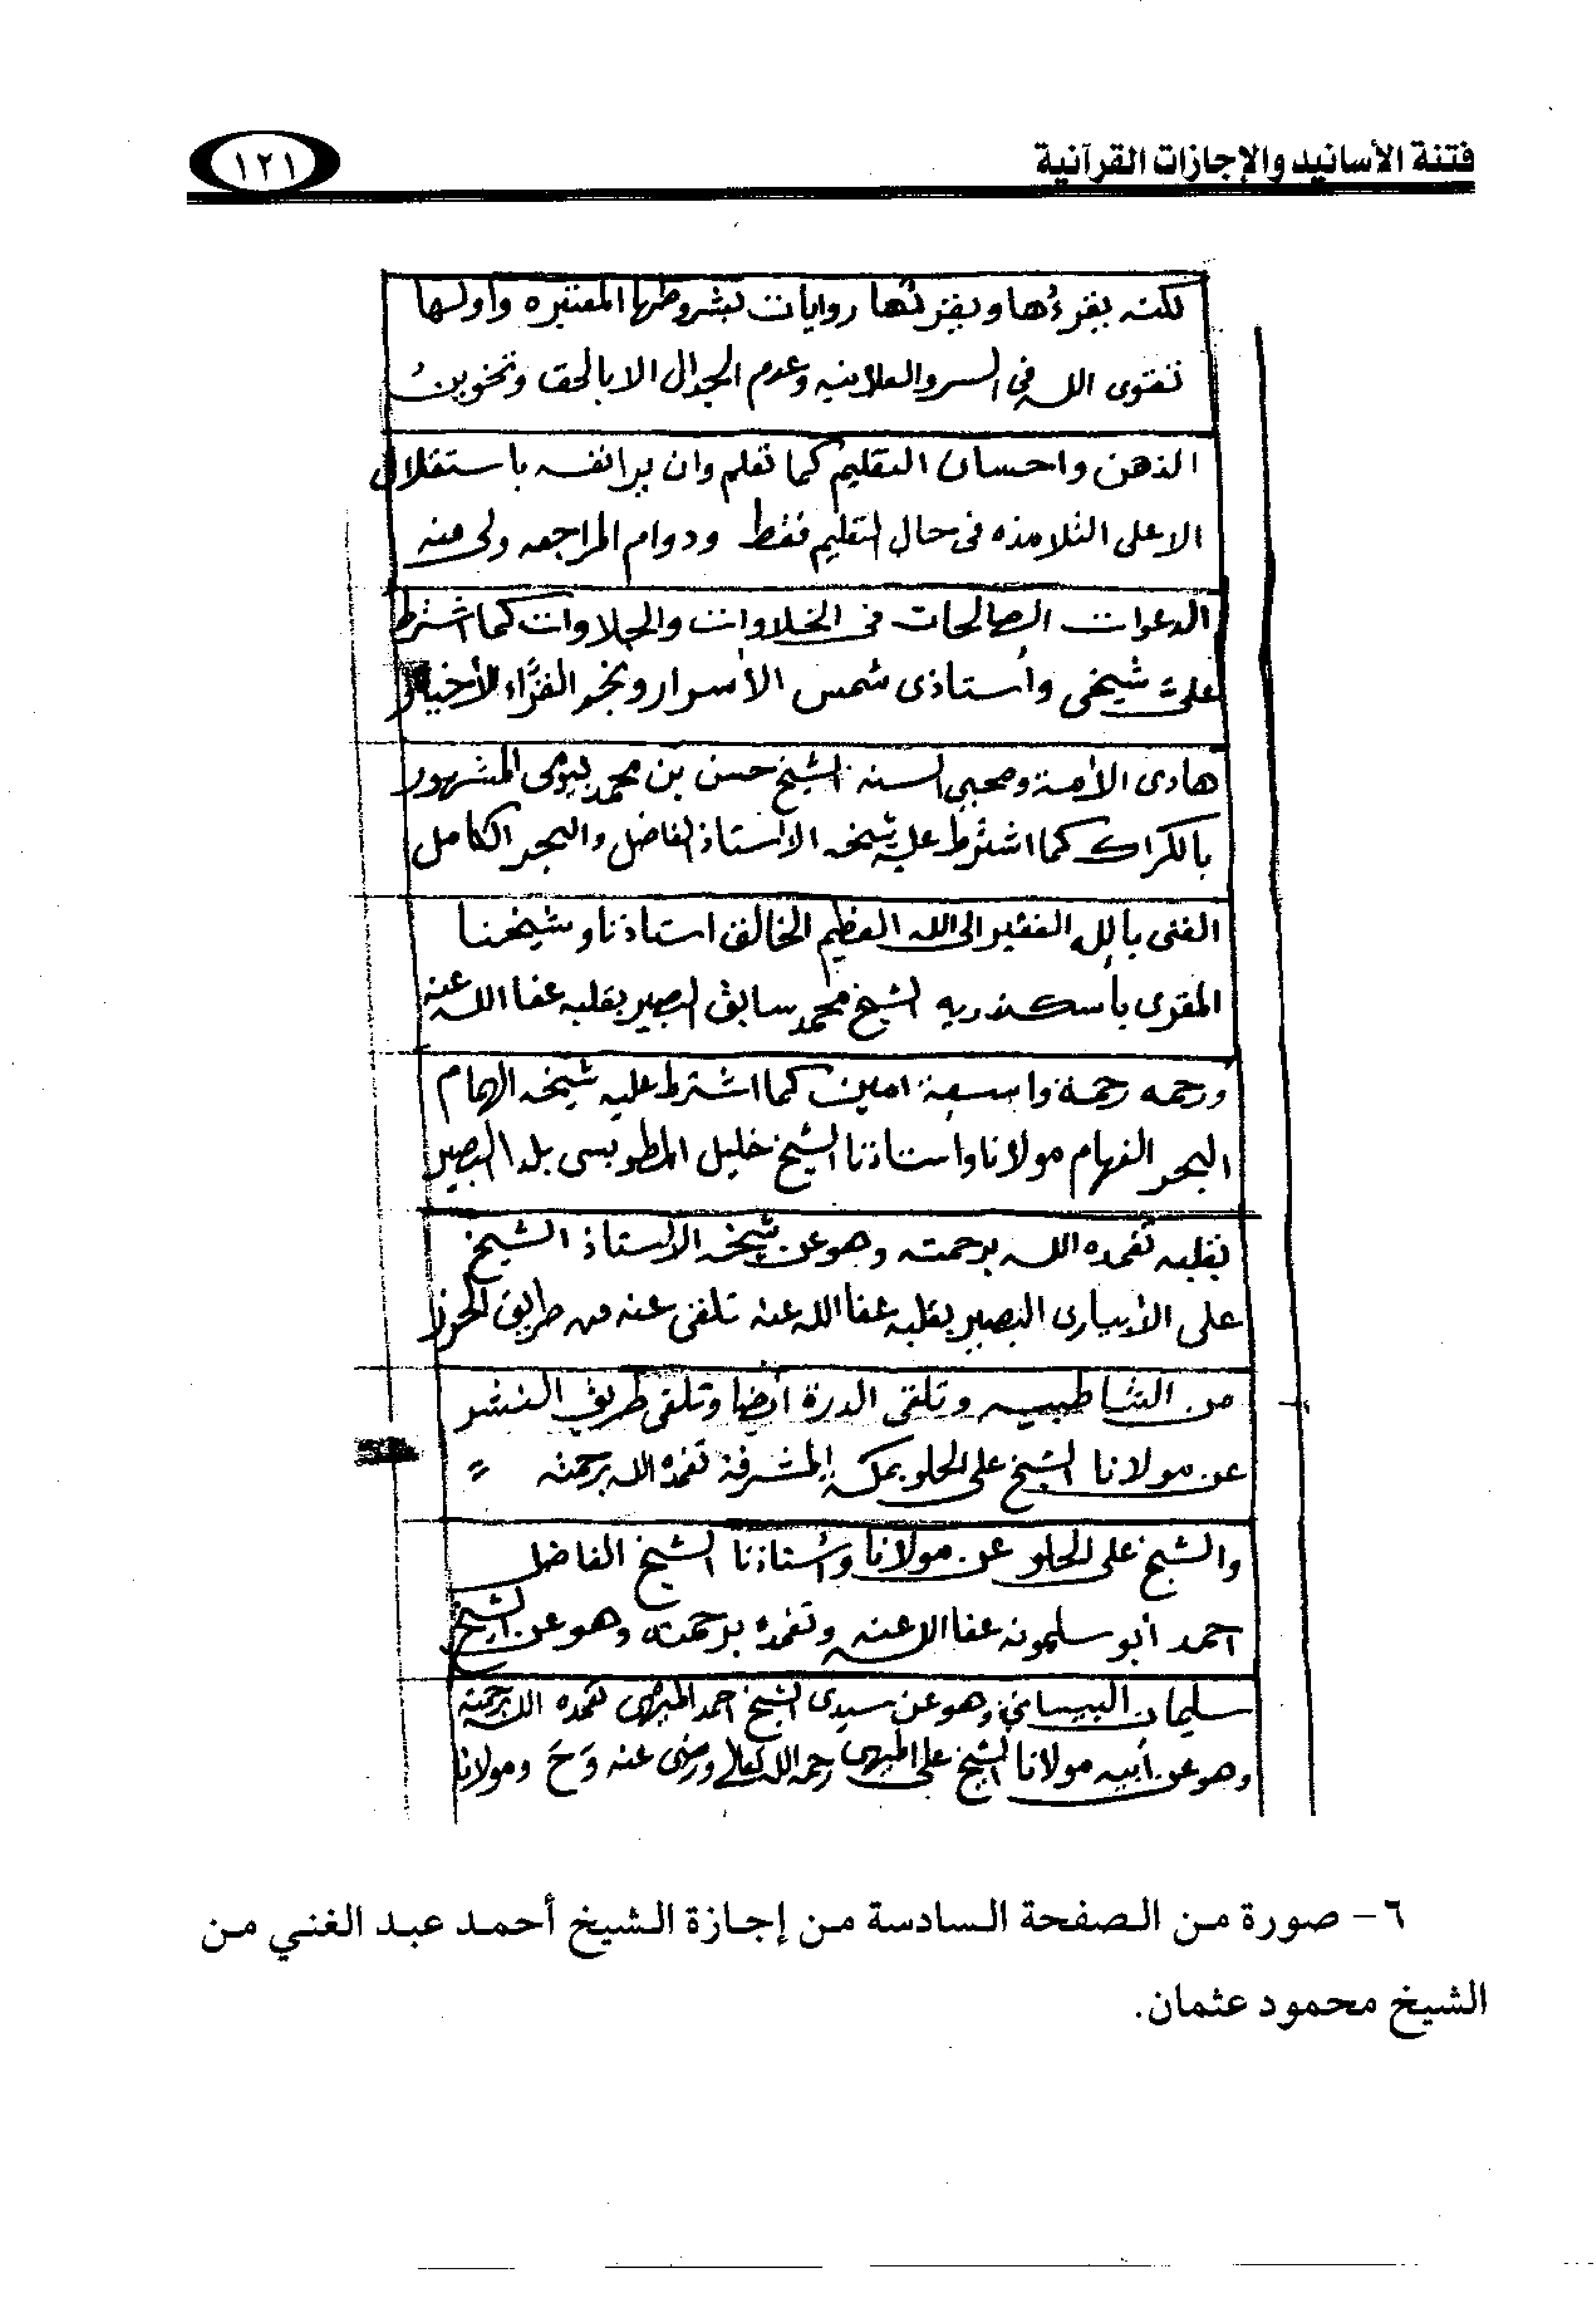 فتنة الأسانيد والإجازات القرآنية
١٢١
لكنه يقرءها ويقرئها روايات بشروطها المعتبره واولها
تقوى الله فى السر والعلانيه وعدم الجدال الا بالحق
الذهن واحسان التعليم كما تعلم وان باستقلال
الا على التلامذه فى حال التعليم فقط ودوام المراجعه ولى منه
الدعوات الصالحات فى الخلاوات والجلاوات كما اشترط
علىَّ شيخى وأستاذى شمس الأسرار وبحر القرَّاء الأخيار
هادى الأمة ومحيى السنه الشيخ حسن بن محمد بيومى المشهور
بالكراك كما اشترط عليه شيخه الأستاذ الفاضل والبحر الكامل
الغنى بالله الفقير الى الله العظيم الخالق استاذنا وشيخنا
المقرى بأسكندريه الشيخ محمد سابق البصير بقلبه عفا الله عنه
ورحمه رحمة واسعة امين كما اشترط عليه شيخه الهمام
البحر الفهام مولانا واستاذنا الشيخ خليل المطوبسى بلدا البصير
بقلبه تغمده الله برحمته وهو عن شيخه الأستاذ الشيخ
على الأبيارى البصير بقلبه عفا الله عنه تلقى عنه من طريق الحرز
من الشاطبيه وتلقى الدرة أيضا وتلقى طريق النشر
عن مولانا الشيخ على الحلو بمكة المشرفة تغمده الله برحمته
والشيخ على الحلو عن مولانا وأستاذنا الشيخ الفاضل
احمد أبو سلمونه عفا الله عنه وتغمده برحمته وهو عن الشيخ
سليمان البيبسانى وهو عن سيدى الشيخ احمد الميهى تغمده الله برحمته
وهو عن أبيه مولانا الشيخ على الميهى رحمه الله تعالى ورضى عنه وَحَ ومولانا
٦- صورة من الصفحة السادسة من إجازة الشيخ أحمد عبد الغني من
الشيخ محمود عثمان.